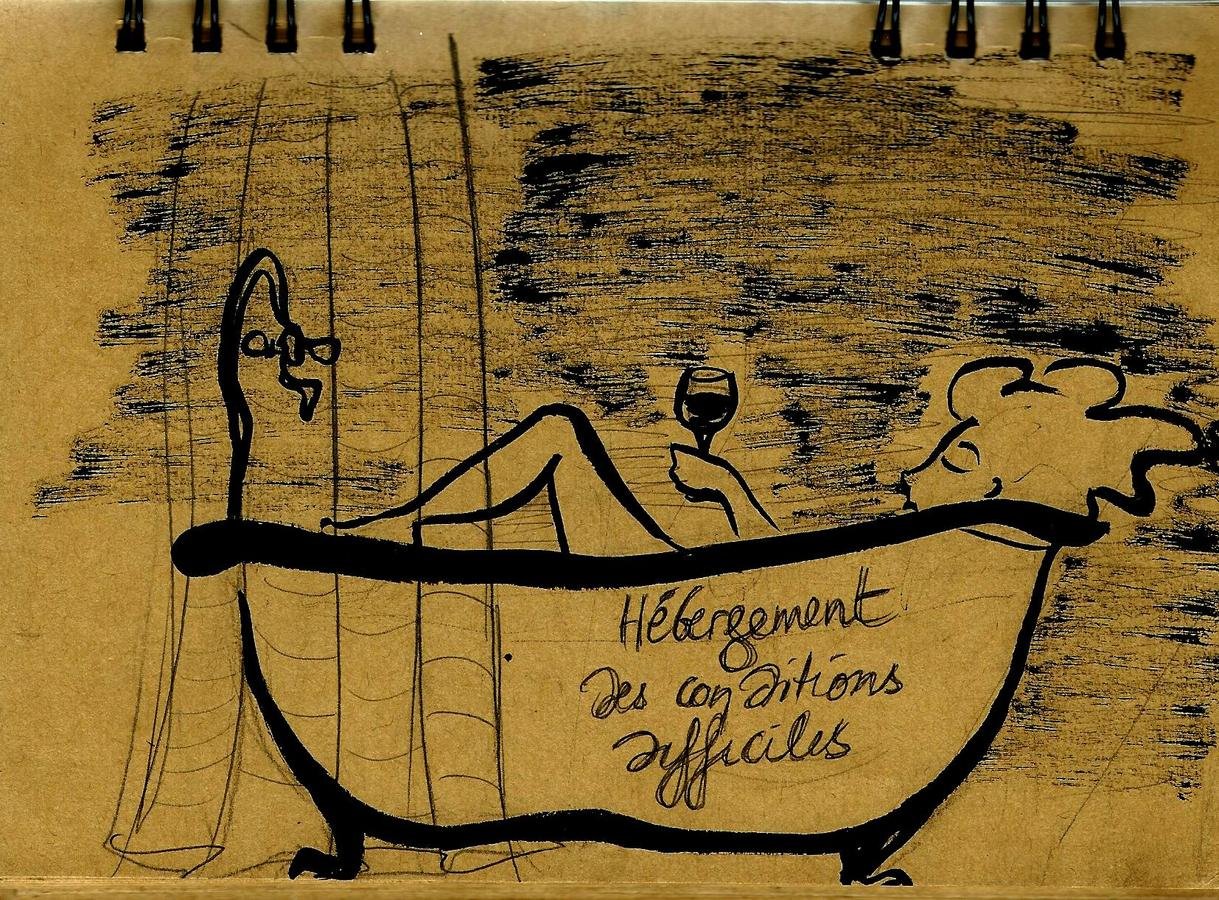 Hébergement
des conditions
difficiles